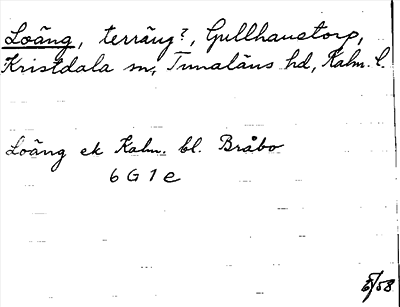 Loäng, terräng?, Gullhanetorp,
Kristdala sn, Tunaläns hd, Kalm. l.
Loäng ek Kalm. bl. Bråbo
6 G 1 e
5/58